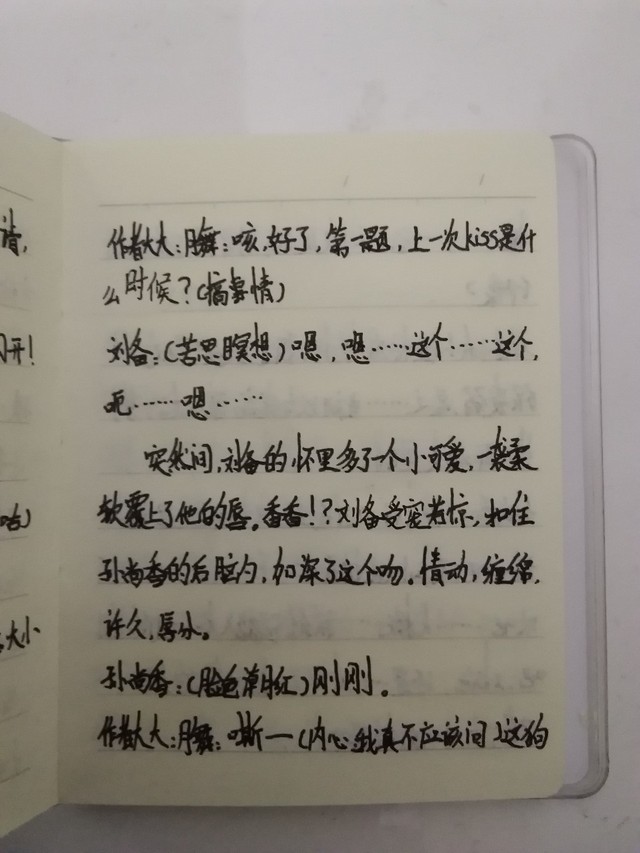 请,
开!
大小
作者大大:月舞:咳,好了,第一题,上一次kiss是什
么时候?(搞事情)
刘备:(苦思瞑想)嗯,嗯……这个……这个,
呃……嗯……
突然间,刘备的怀里多了一个小可爱,一袭柔
软覆上了他的唇。香香!?刘备受宠若惊,扣住
孙尚香的后脑勺,加深了这个吻。情动,缠绵,
许久,唇分。
孙尚香:(脸色潮红)刚刚。
作者大大:月舞:嘶—(内心:我真不应该问)这狗